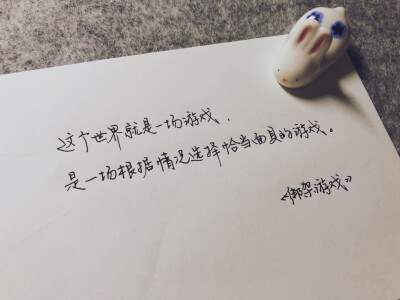 这个世界就是一场游戏,
是一场根据情况选择恰当面具的游戏。
《绑架游戏》